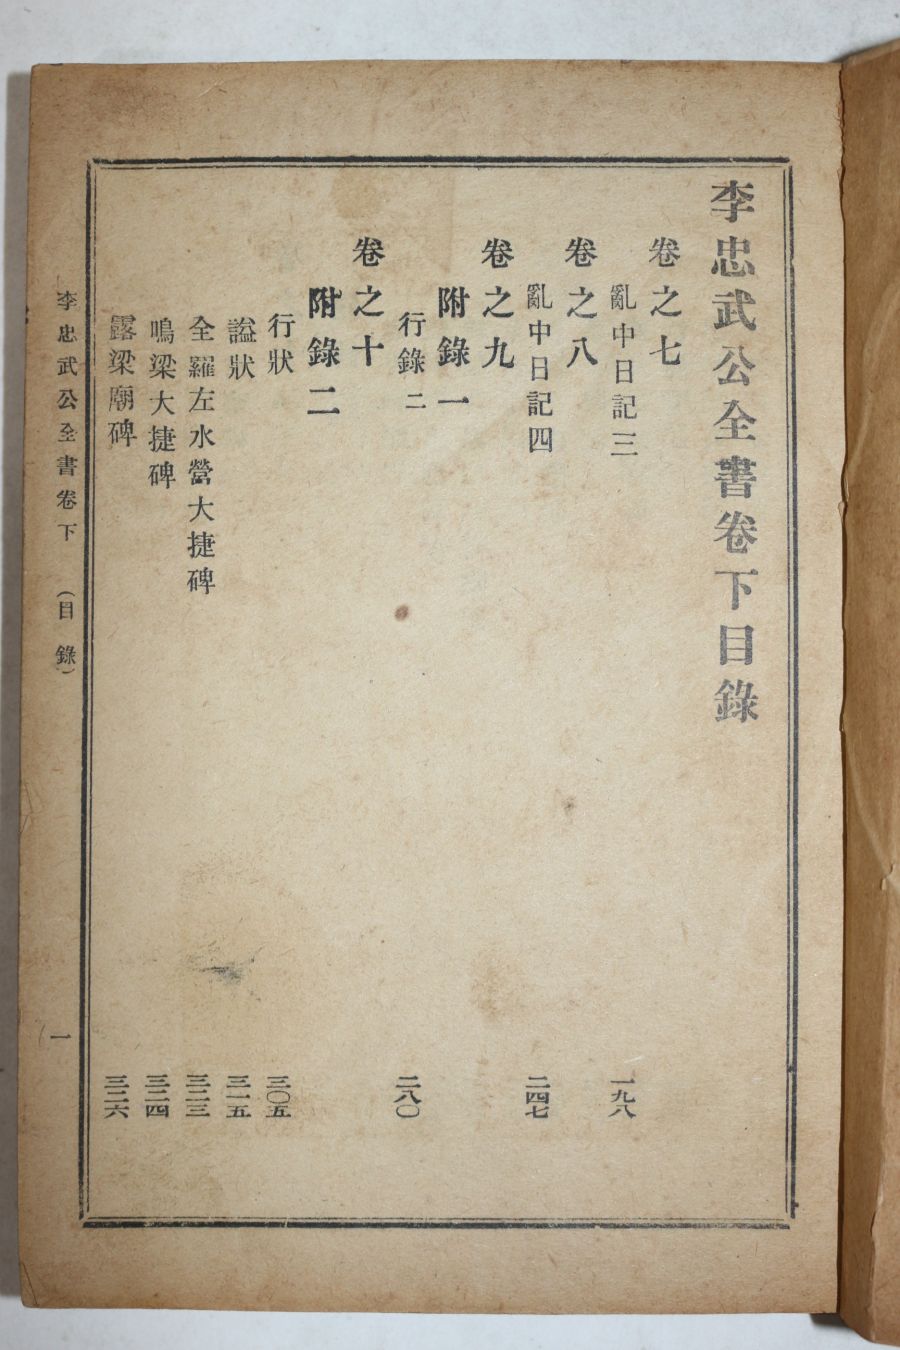 李忠武公全書卷下目錄
卷之七
亂中日記三 一九八
卷之八
亂中日記四 二四七
卷之九
附錄一
行錄二 二八〇
卷之十
附錄二
行狀 三〇五
諡狀 三一五
全羅左水營大捷碑 三二三
鳴梁大捷碑 三二四
露梁廟碑 三二六
李忠武公全書卷下 (目錄) 一